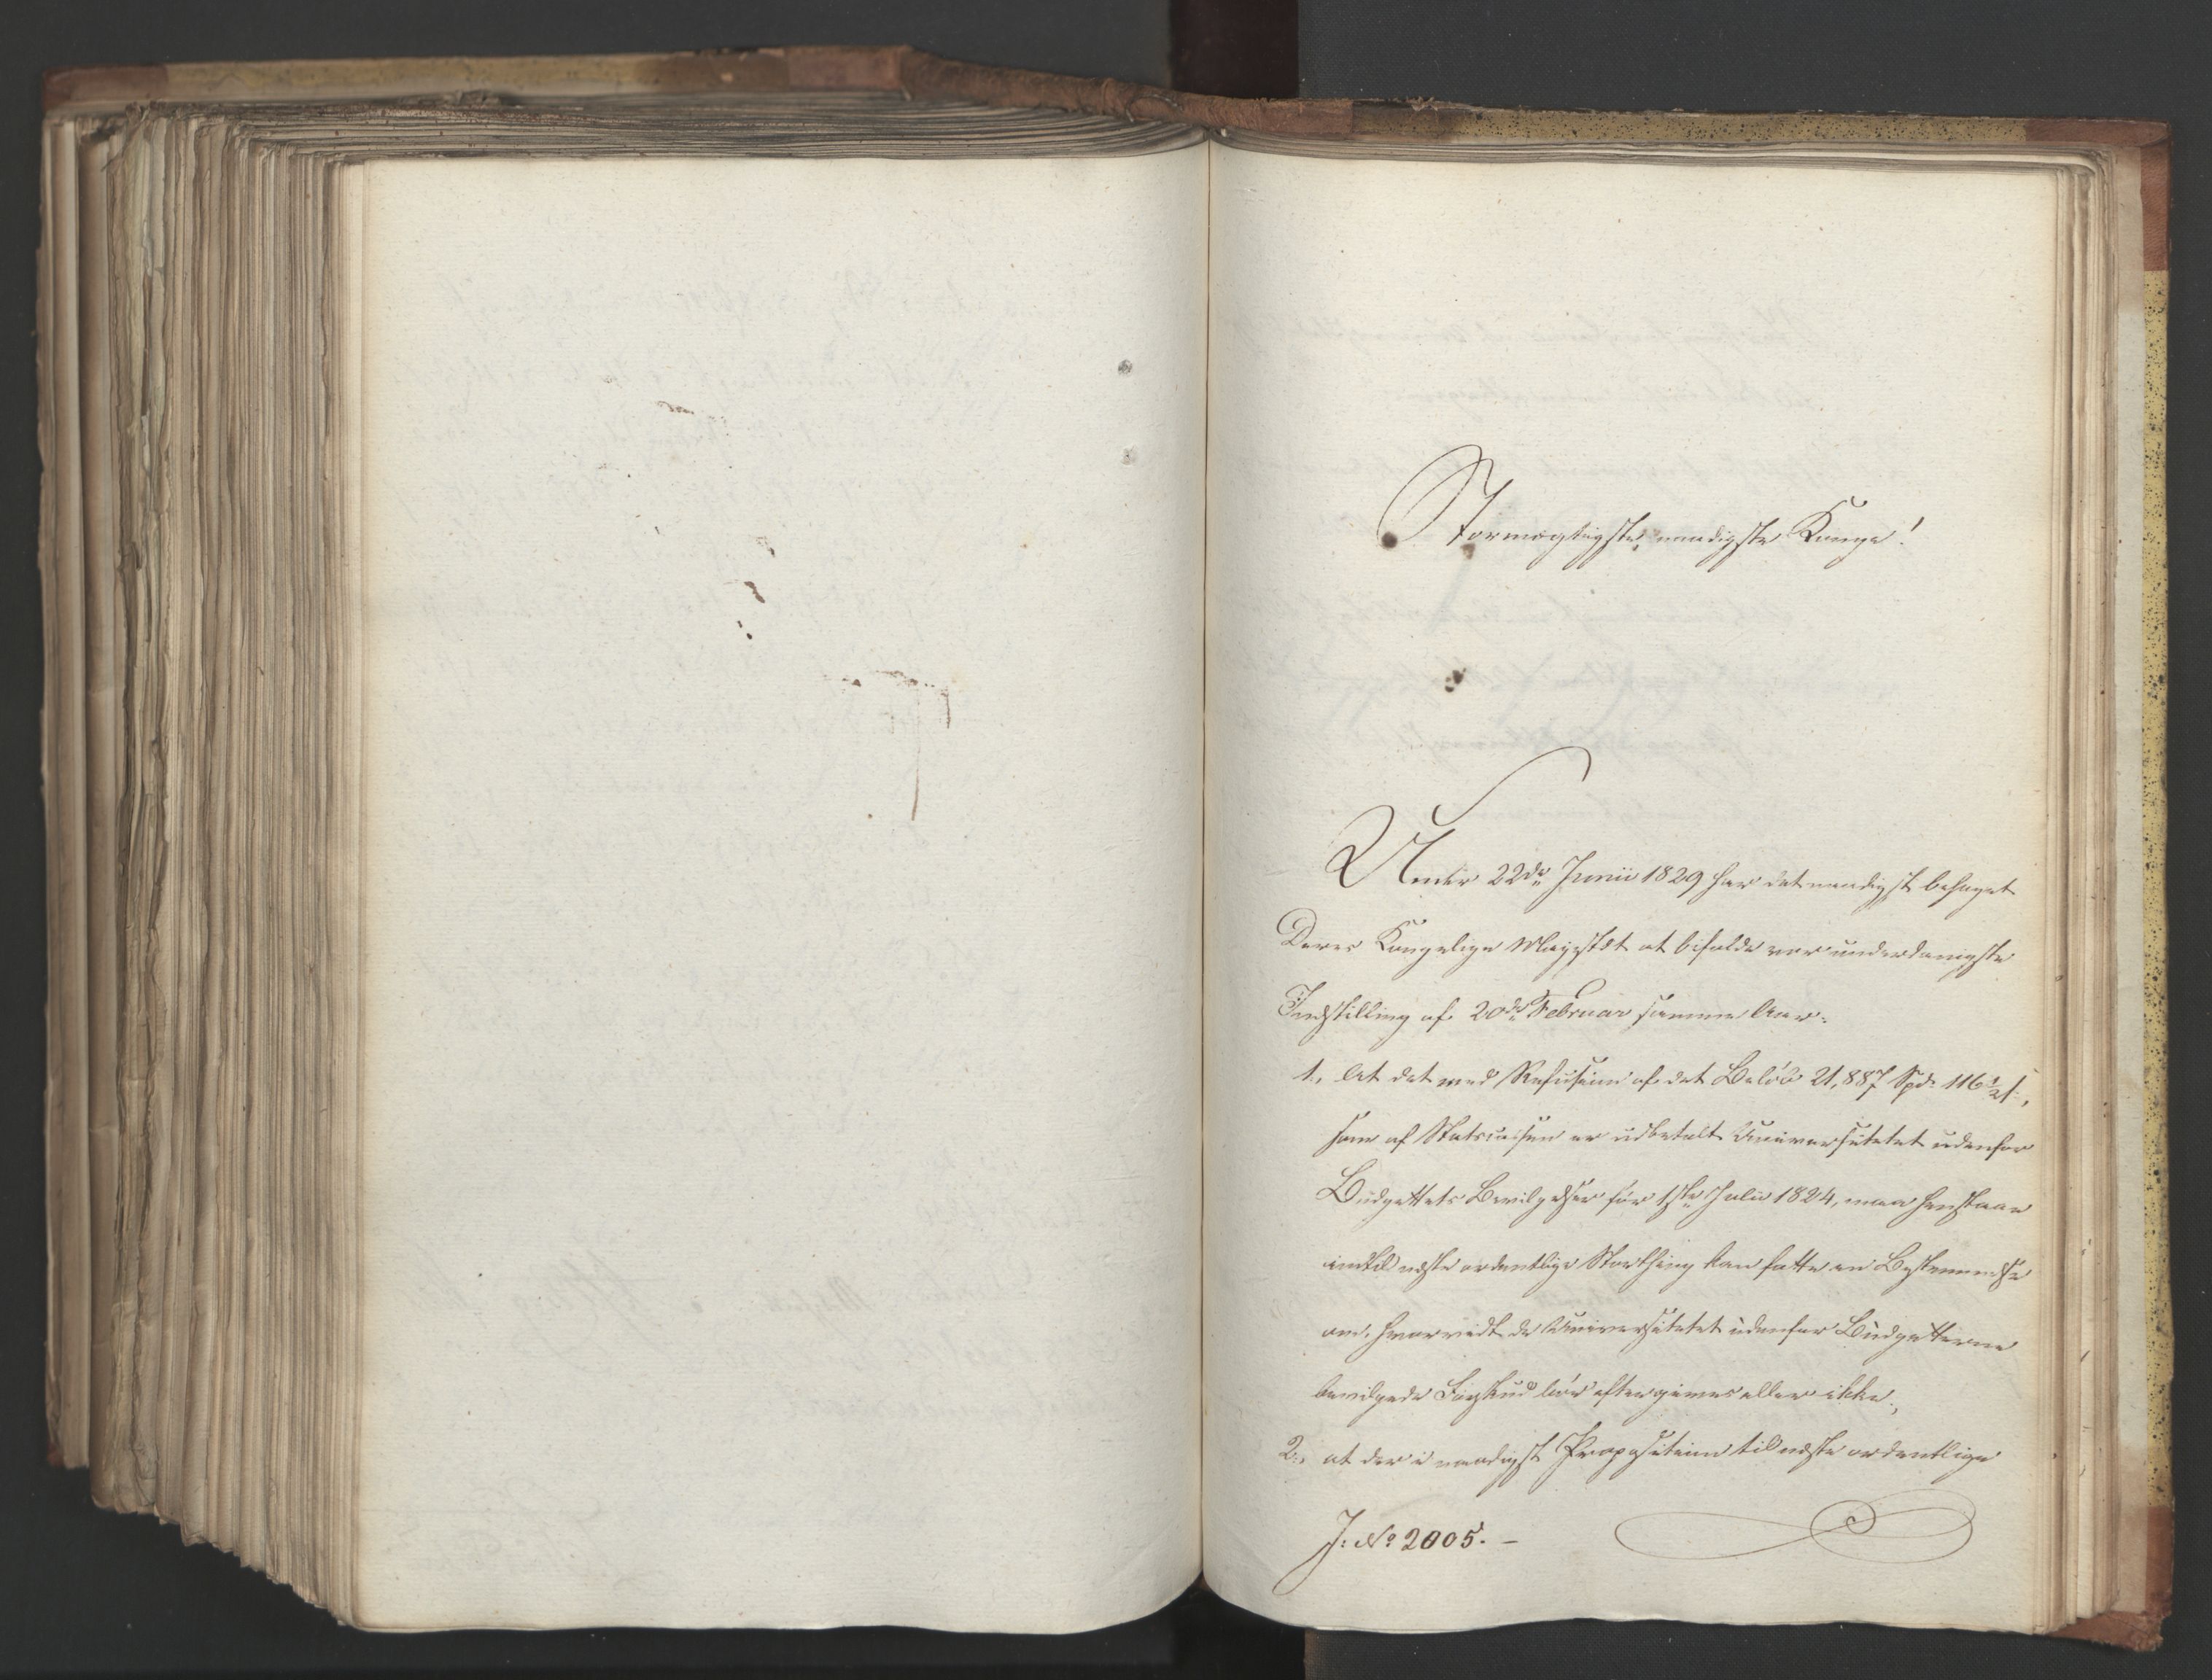 Stormægtigste, naadigste Konge!
Under 22de Junii 1829 har det naadigst behaget
Deres Kongelige Majestæt at bifalde vor underdanigste
Indstilling af 20de Februar samme Aar:
1., At det med Refusion af det Beløb 21,887 Spd: 116½ s:,
som af Statscassen er udbetalt Universitetet udenfor
Budgettets Bevilgelser før 1ste Julii 1824, maa henstaae
indtil næste ordentlige Storthing kan fatte en Bestemmelse
om, hvorvidt de Universitetet udenfor Budgetterne
bevilgede Forskud bør eftergives eller ikke.,
2., at der i naadigst Proposition til næste ordentlige
J: No 2005. -